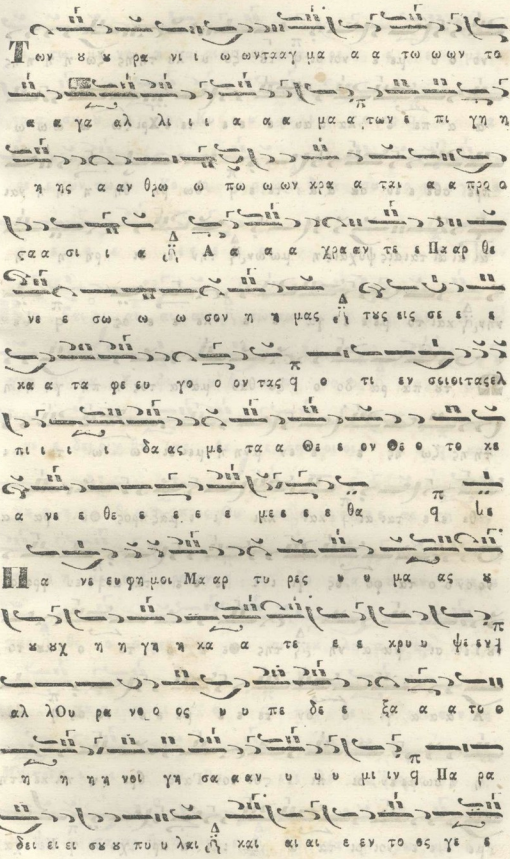 Των ου ου ρα νι ι ω ωντααγ μα α α τω ω ων το
α α γα αλ λι ι ι α α α μα α των ε πι γη η
η ης α αν θρω ω πω ω ων κρα α ται α α προ ο
ςα α σι ι α Α α α α χρα αν τε ε Πα αρ θε
νε ε σω ω ω σον η η μας τους εις σε ε ε
κα α τα φε ευ γο ο ον τας ο τι εν σοι οι τας ελ
πι ι ι ι δα ας με τα α Θε ε ον Θε ο το κε
α νε ε θε ε ε ε ε με ε ε ε θα
Πα νε ευφημοι Μα αρ τυ ρες υ υ μα ας ου
ου ουχ η η γη η κα α τε ε ε κρυ υ ψε εν
αλ λΟυ ρα νο ο ος υ υ πε δε ε ξα α α το ο
η η η η νοι γη σα α αν υ υ υ μι ιν Πα ρα
δει ει ει σου ου πυ υ λαι και αι αι ε εν το ος γε ε